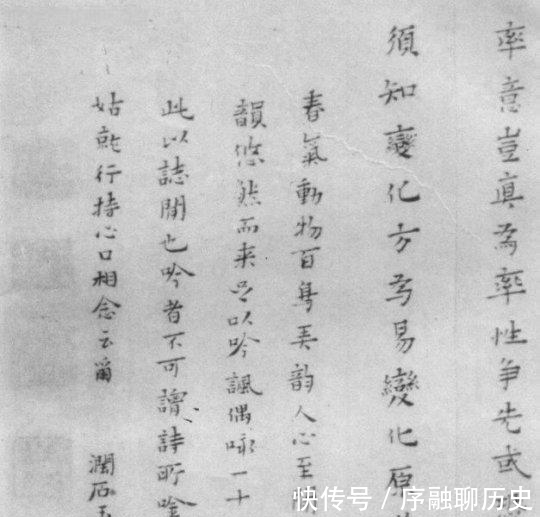 率意豈真為率性爭先或
須知變化方為易變化原
春氣動物百鳥弄韵人心至
韻悠然而来足以吟諷偶咏一十
此以誌閒也吟者不可讀詩所唫
姑就行持心口相念云爾
澗石
快传号/序融聊历史